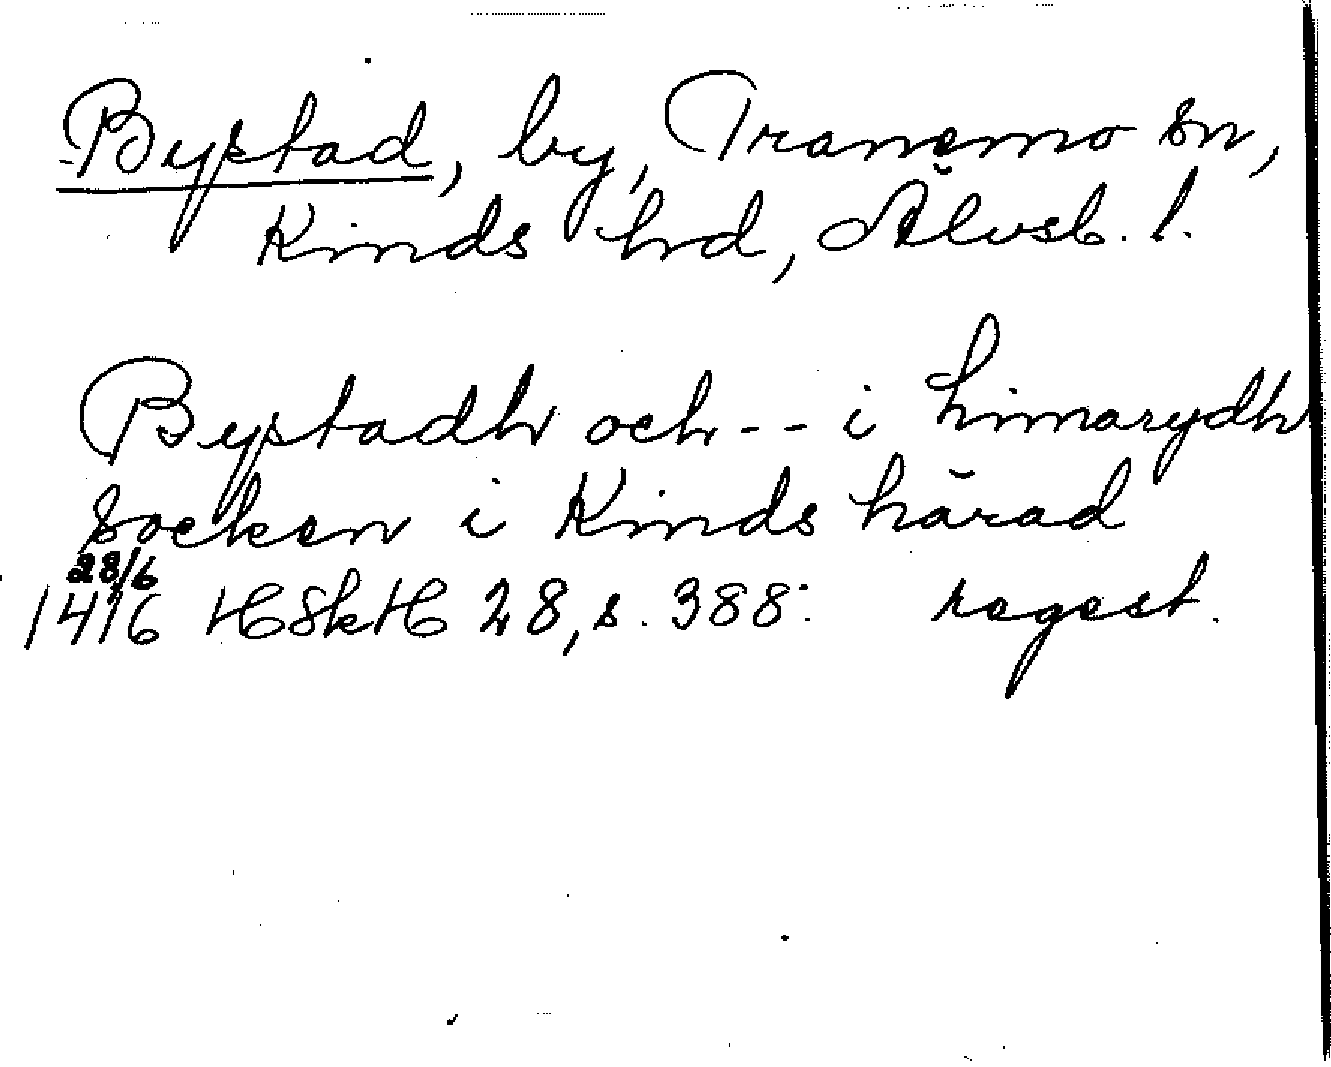 Bystad, by, Tranemo sn,
Kinds hd, Älvsb. l.
Bystadh och -- i Limarydh
socken i Kinds härad
28/6
1416 HSkH 28, s. 388: regest.